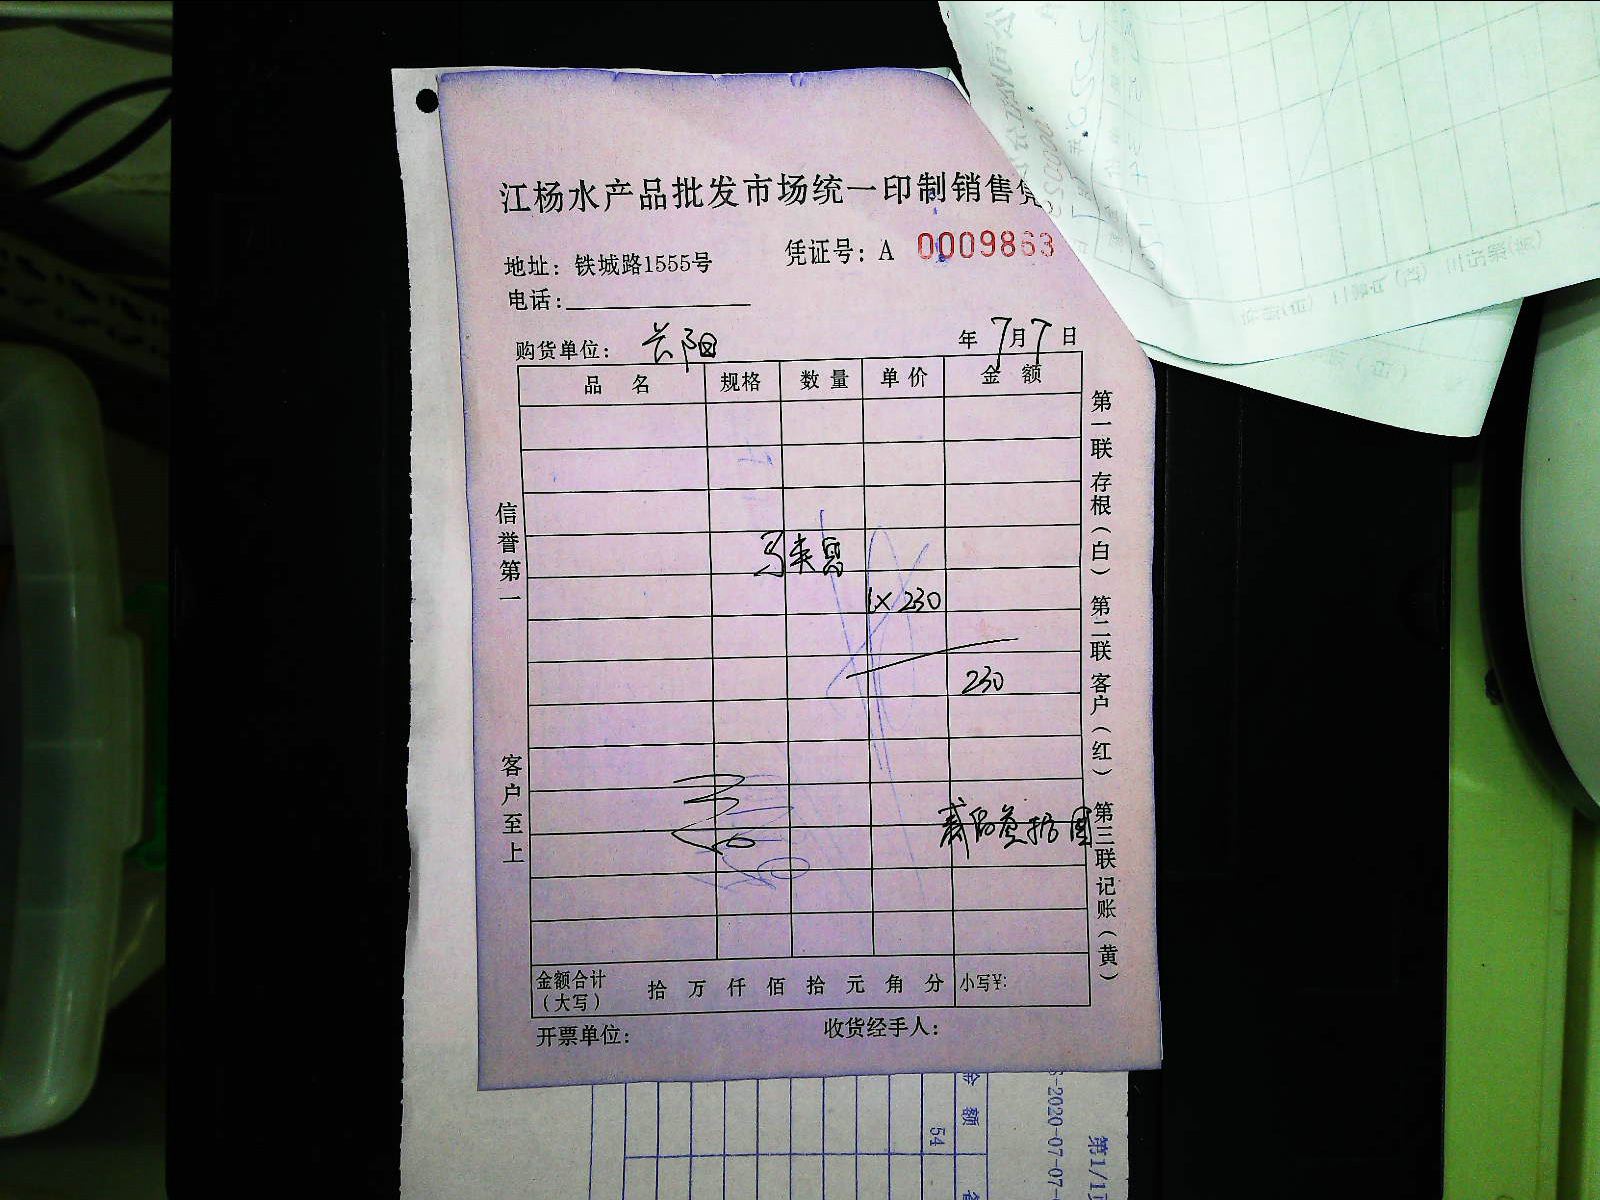 江杨水产品批发市场统一印制销售凭
地址：铁城路1555号
凭证号：A 0009863
电话：
购货单位： 长阳
年 7月7日
品 名 规格 数量 单价 金 额
1×230
230
信誉第一
客户至上
第一联 存根（白） 第二联 客户（红） 第三联 记账（黄）
贰佰叁拾圆
金额合计（大写） 拾 万 仟 佰 拾 元 角 分 小写¥:
开票单位：
收货经手人：
金 额
54
-2020-07-07-
第1/1